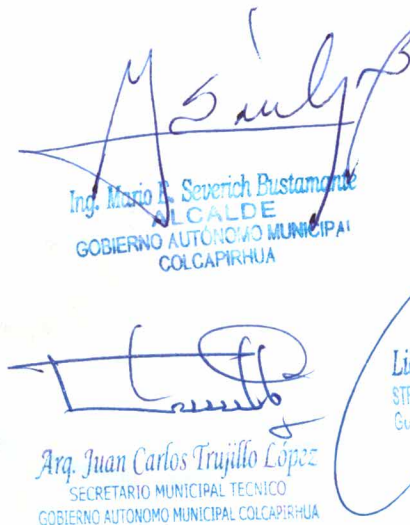 Ing. Mario E. Severich Bustamante
ALCALDE
GOBIERNO AUTÓNOMO MUNICIPAL
COLCAPIRHUA
Arq. Juan Carlos Trujillo López
SECRETARIO MUNICIPAL TECNICO
GOBIERNO AUTONOMO MUNICIPAL COLCAPIRHUA